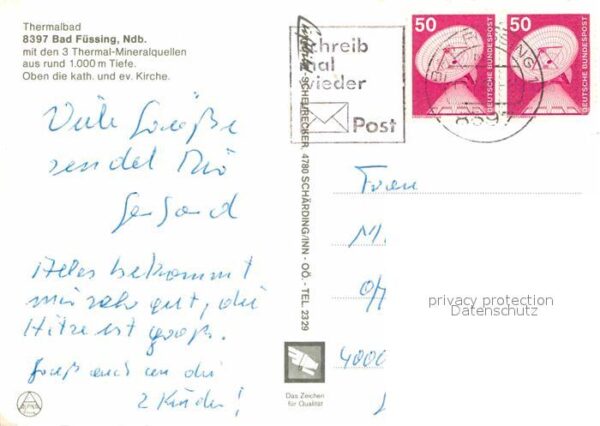 Thermalbad
8397 Bad Füssing, Ndb.
mit den 3 Thermal-Mineralquellen
aus rund 1.000 m Tiefe.
Oben die kath. und ev. Kirche.
Viele Grüße
sendet Dir
Alles bekommt
mir sehr gut, die
Hitze ist groß.
Gruß auch an die
2 Kinder!
-SCHEURECKER, 4780 SCHÄRDING/INN - OÖ. - TEL. 2329
Schreib
mal
wieder
Post
50
DEUTSCHE BUNDESPOST
50
DEUTSCHE BUNDESPOST
8397
Frau
M.
privacy protection
Datenschutz
4000
Das Zeichen
für Qualität